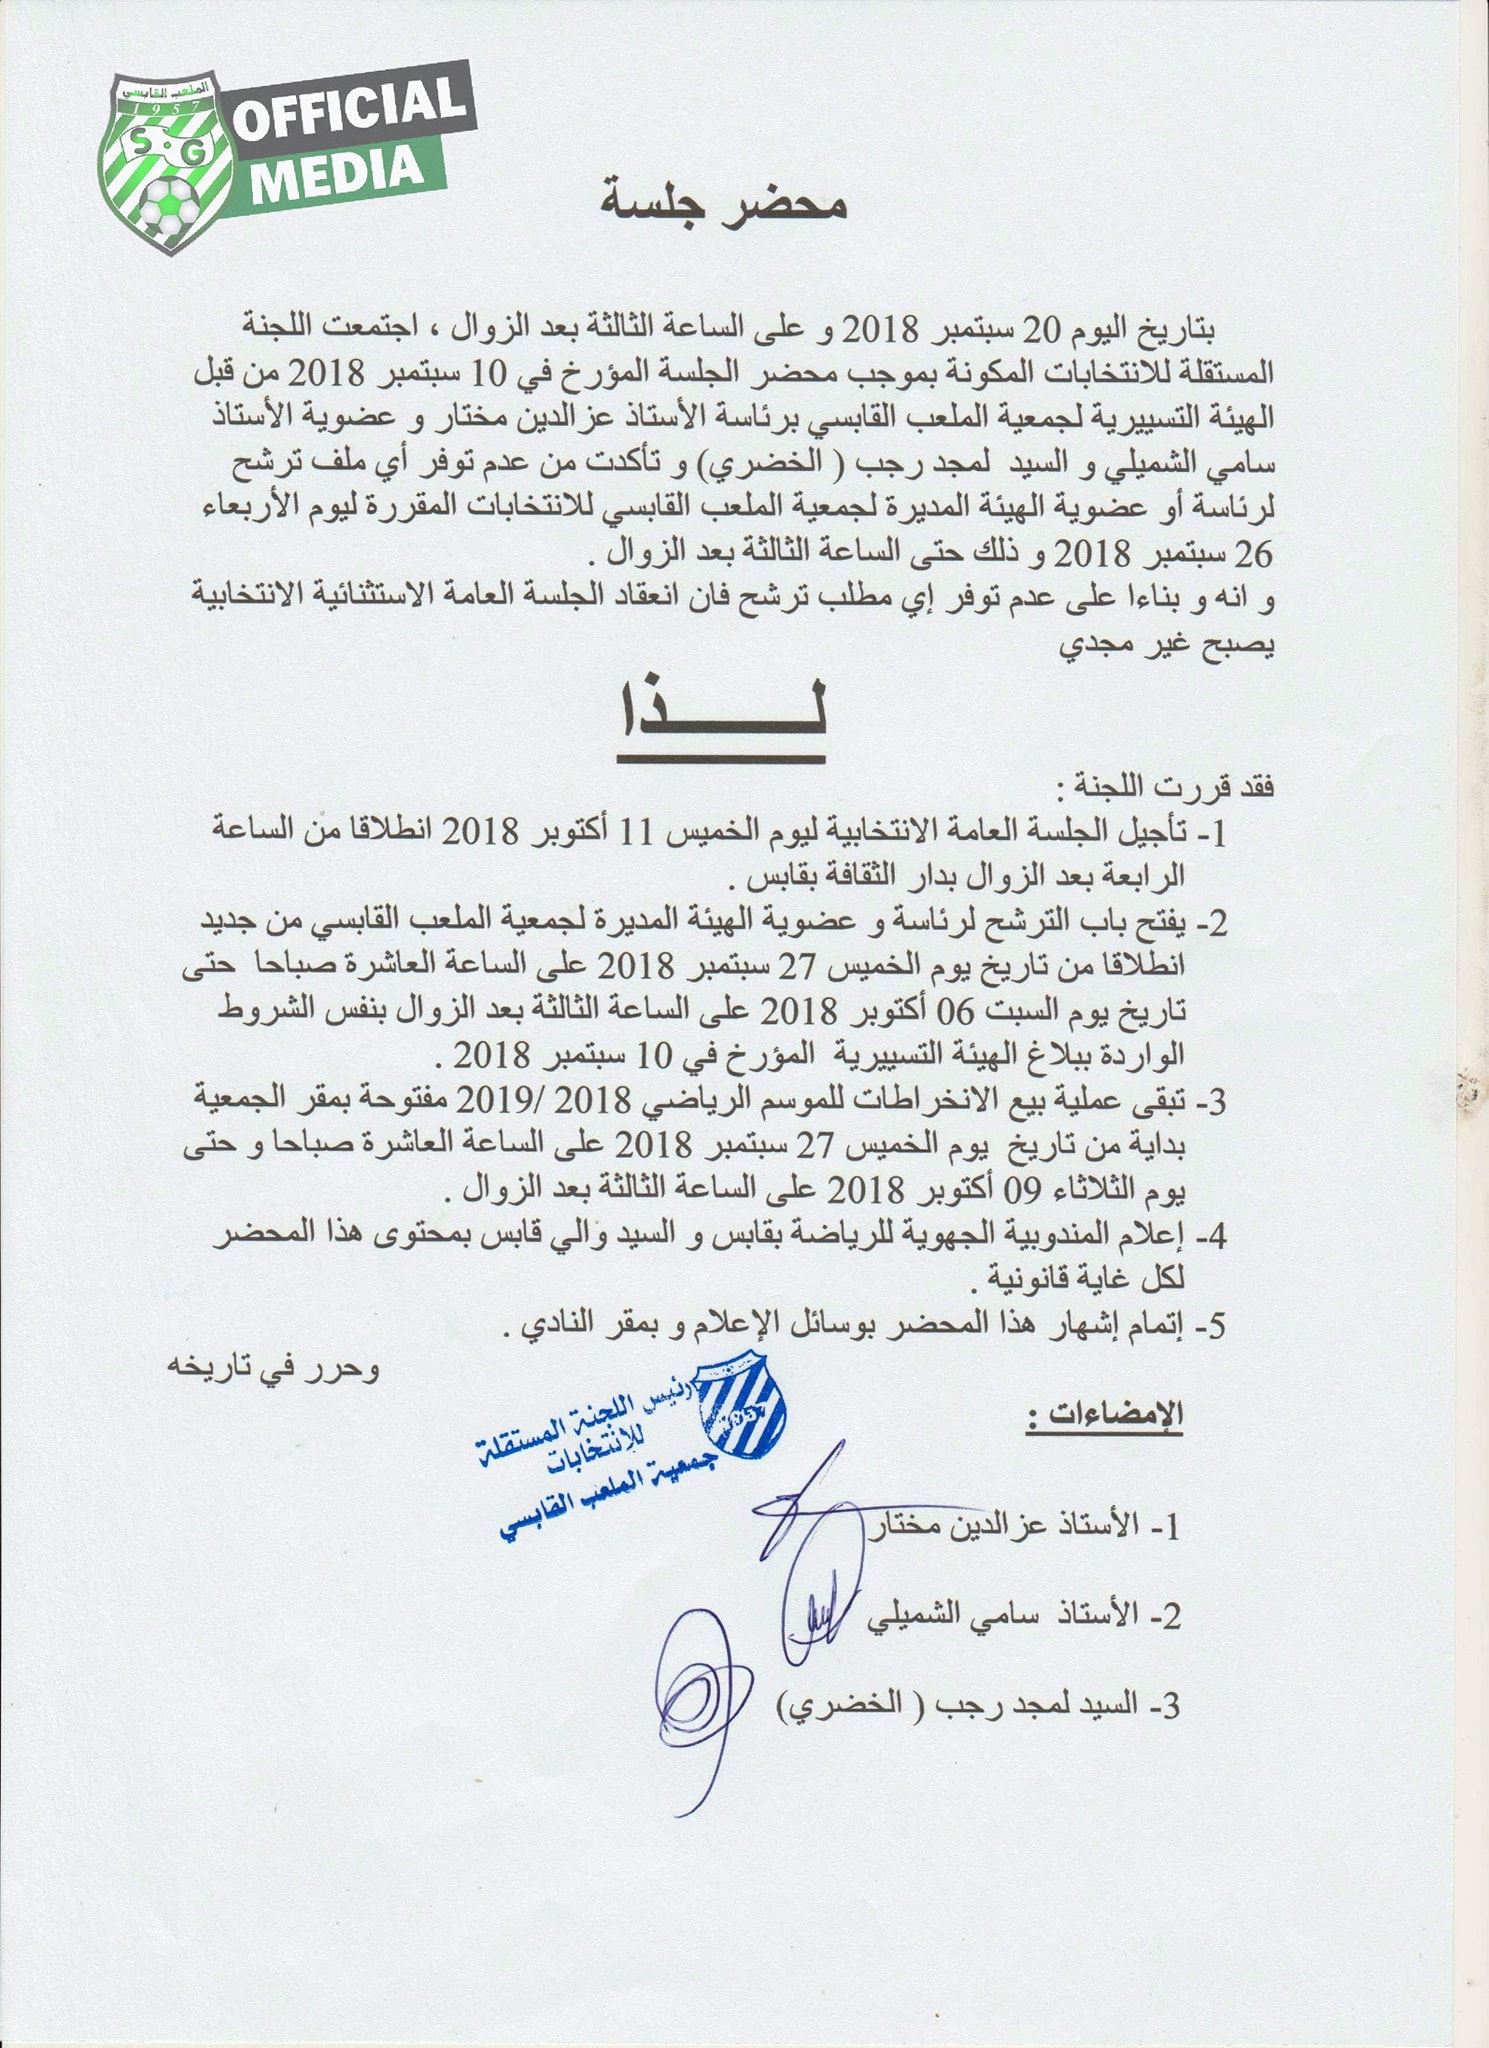 الملعب القابسي
1957
S G
OFFICIAL
MEDIA
محضر جلسة
بتاريخ اليوم 20 سبتمبر 2018 و على الساعة الثالثة بعد الزوال ، اجتمعت اللجنة
المستقلة للانتخابات المكونة بموجب محضر الجلسة المؤرخ في 10 سبتمبر 2018 من قبل
الهيئة التسييرية لجمعية الملعب القابسي برئاسة الأستاذ عز الدين مختار و عضوية الأستاذ
سامي الشميلي و السيد لمجد رجب ( الخضري) و تأكدت من عدم توفر أي ملف ترشح
لرئاسة أو عضوية الهيئة المديرة لجمعية الملعب القابسي للانتخابات المقررة ليوم الأربعاء
26 سبتمبر 2018 و ذلك حتى الساعة الثالثة بعد الزوال .
و انه و بناءا على عدم توفر إي مطلب ترشح فان انعقاد الجلسة العامة الاستثنائية الانتخابية
يصبح غير مجدي
لـــــذا
فقد قررت اللجنة :
1- تأجيل الجلسة العامة الانتخابية ليوم الخميس 11 أكتوبر 2018 انطلاقا من الساعة
الرابعة بعد الزوال بدار الثقافة بقابس .
2- يفتح باب الترشح لرئاسة و عضوية الهيئة المديرة لجمعية الملعب القابسي من جديد
انطلاقا من تاريخ يوم الخميس 27 سبتمبر 2018 على الساعة العاشرة صباحا حتى
تاريخ يوم السبت 06 أكتوبر 2018 على الساعة الثالثة بعد الزوال بنفس الشروط
الواردة ببلاغ الهيئة التسييرية المؤرخ في 10 سبتمبر 2018 .
3- تبقى عملية بيع الانخراطات للموسم الرياضي 2018 /2019 مفتوحة بمقر الجمعية
بداية من تاريخ يوم الخميس 27 سبتمبر 2018 على الساعة العاشرة صباحا و حتى
يوم الثلاثاء 09 أكتوبر 2018 على الساعة الثالثة بعد الزوال .
4- إعلام المندوبية الجهوية للرياضة بقابس و السيد والي قابس بمحتوى هذا المحضر
لكل غاية قانونية .
5- إتمام إشهار هذا المحضر بوسائل الإعلام و بمقر النادي .
وحرر في تاريخه
الإمضاءات :
رئيس اللجنة المستقلة
للانتخابات
جمعية الملعب القابسي
1- الأستاذ عز الدين مختار
2- الأستاذ سامي الشميلي
3- السيد لمجد رجب ( الخضري)